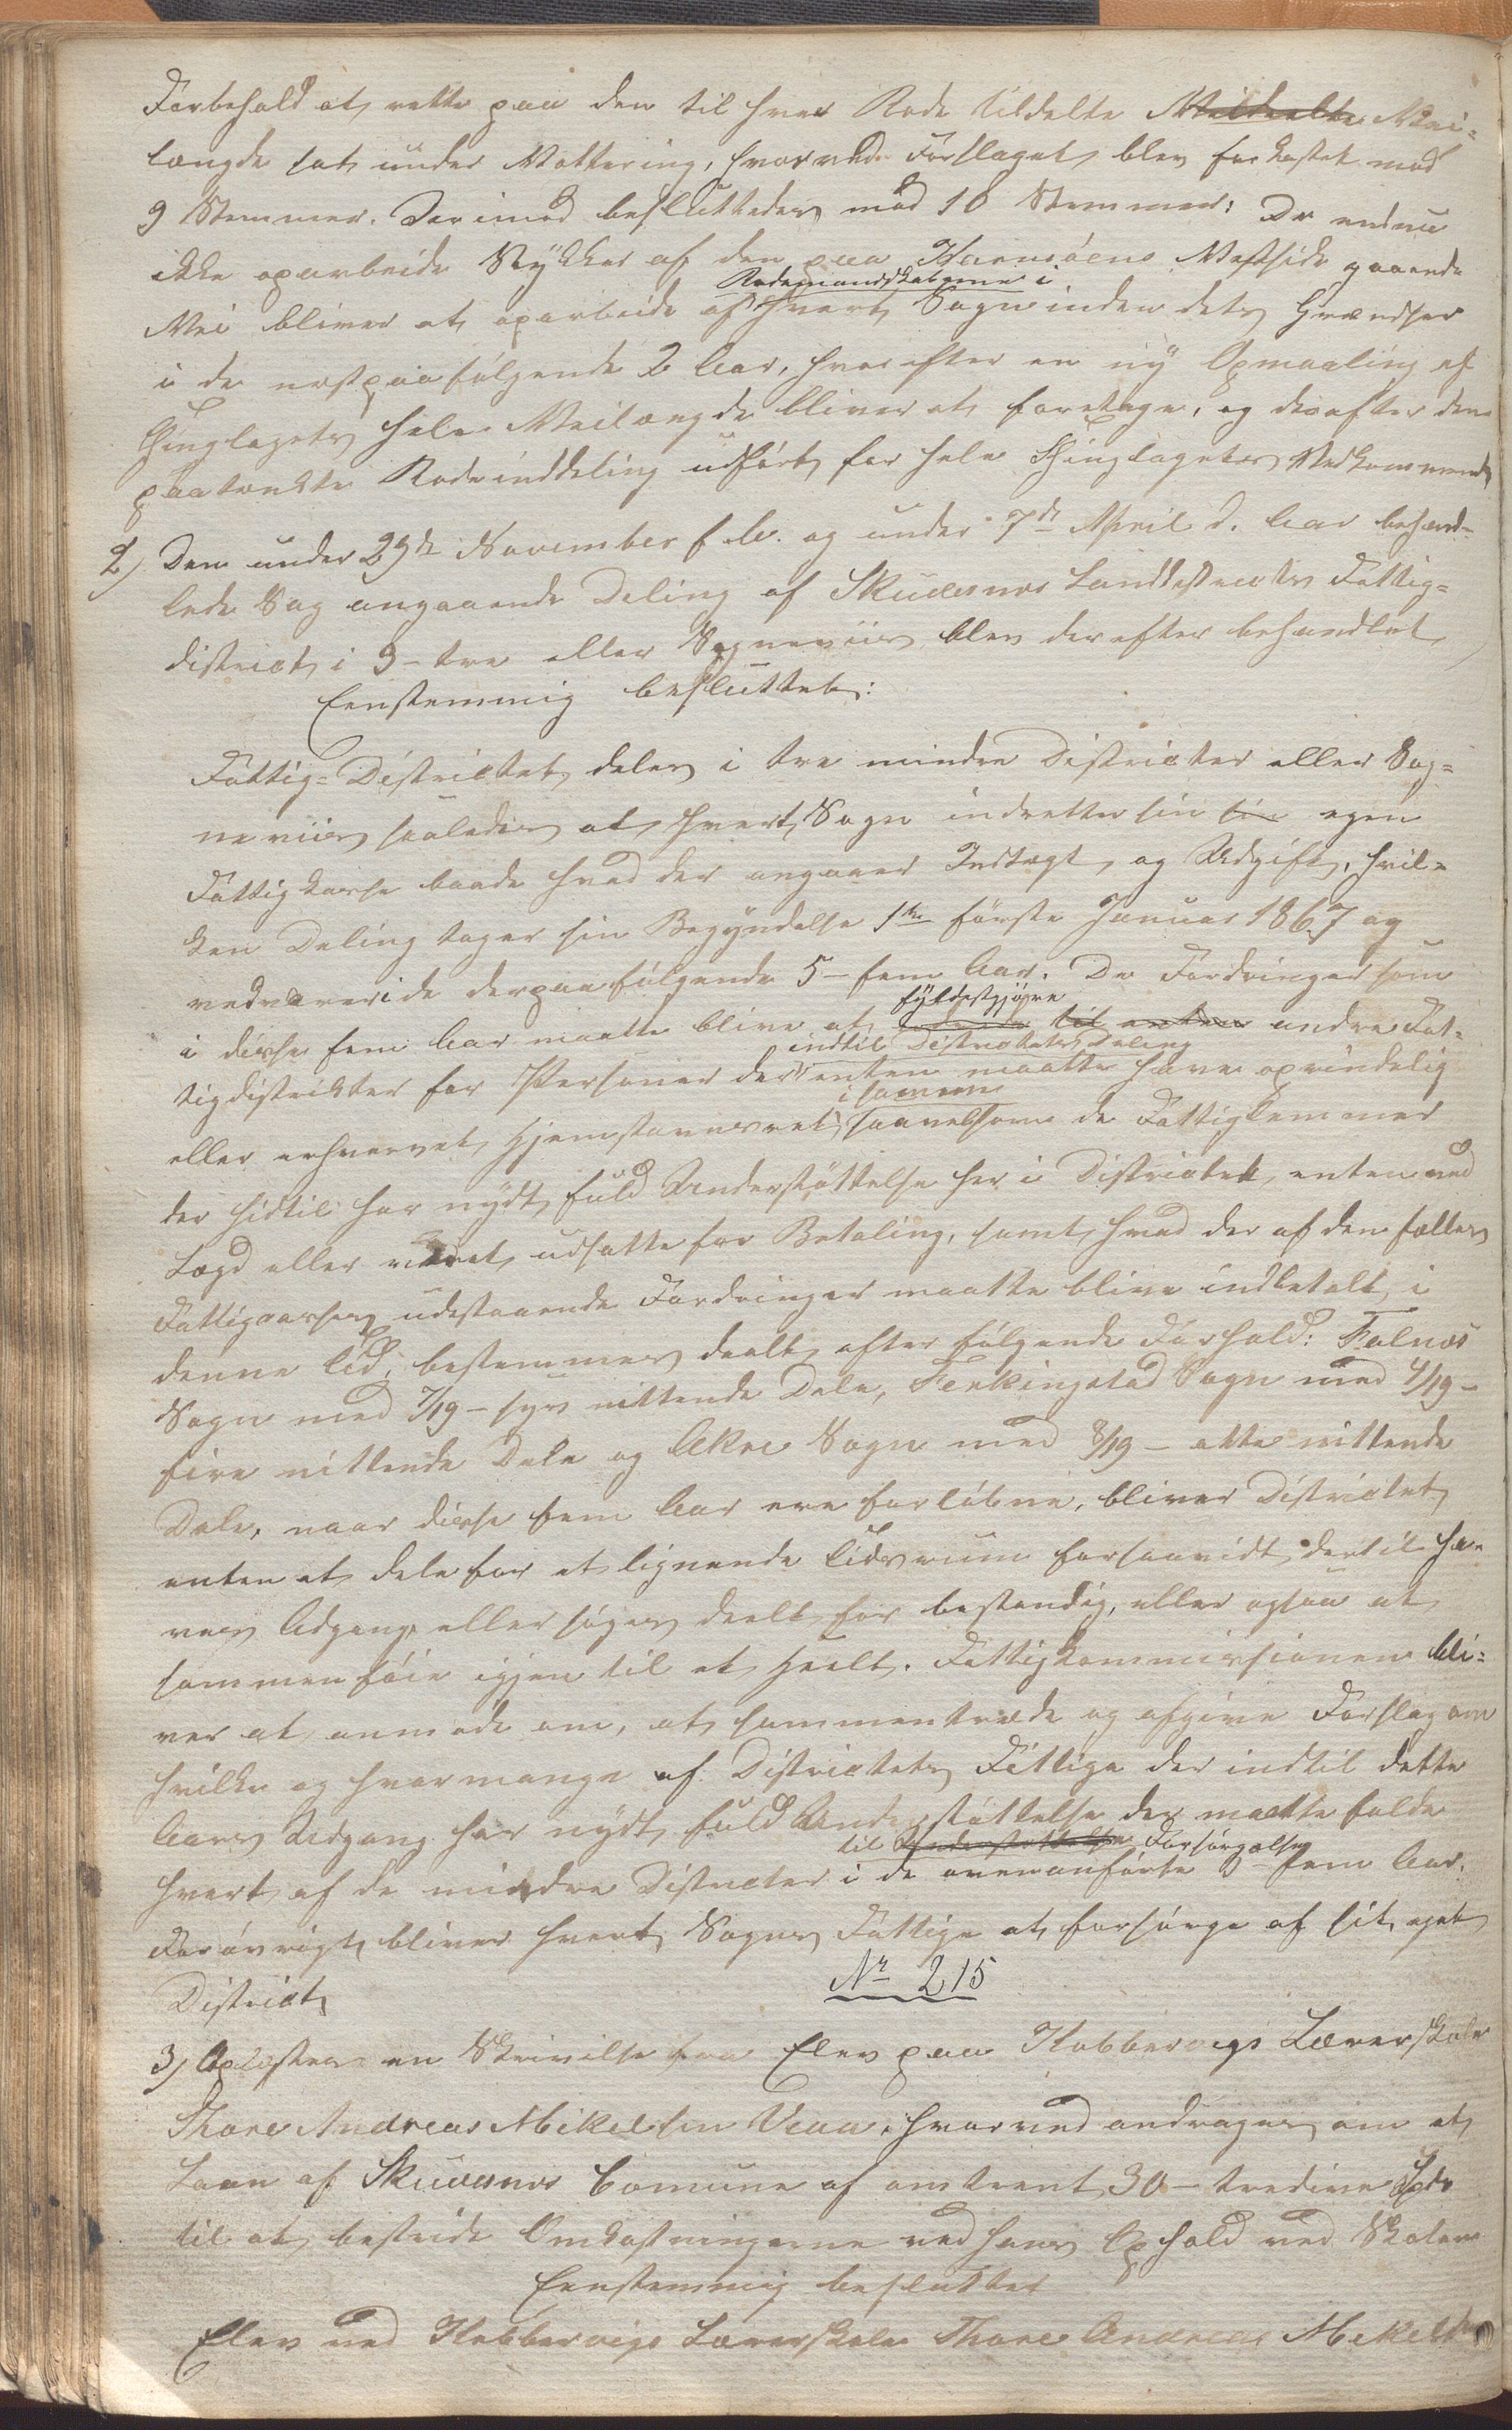 Forbehold at rette paa den til hver Rode tildelte Meldeelte Vei-
længde sat under Vottering, hvorved Forslaget blev forkastet mod
9 Stemmer. Derimod besluttedes mod 10 Stemmer: De endnu
ikke oparbeide Stykker af den paa Karmøens Vestside gaaende
Rodemandskaberne i
Vei bliver at oparbeide af hvert Sogn inden dets Grændser
i de nestpaafølgende 2 Aar, hvorefter en ny Opmaaling af
Thinglagets hele Veilængde bliver at foretage, og derefter den
paatænkte Rodeinddeling udført for hele Thinglagets Vedkommende
2) Den under 29de November f. A. og under 7de April d. Aar behand-
lede Sag angaaende Deling af Skudesnæs Landdistricts Fattig-
district i 3 - tre eller Sogneviis blev derefter behandlet
Eenstemmig besluttet:
Fattig-Districtet deles i tre mindre Districter eller Sog-
neviis saaledes at hvert Sogn indretter sin sin egen
Fattigkasse baade hvad der angaaer Indtægt og Udgift, hvil-
ken Deling tager sin Begyndelse 1ste første Januar 1867 og
vedvarer i de derpaafølgende 5 - fem Aar. De Fordringer som
fyldestgjøre
i disse fem Aar maatte blive at til enten andre Fat-
indtil Districtets Deling
tigdistrikter for Personer der enten maatte have oprindelig
i samme
eller erhvervet Hjemstavnsret saavelsom de Fattiglemmer
der hidtil har nydt fuld Understøttelse her i Districtet, enten ved
Lægd eller været udsatte for Betaling, samt hvad der af den fælles
Fattigcasses udestaaende Fordringer maatte blive indbetalt i
denne Tid, bestemmes deelt efter følgende Forhold: Falnæs
Sogn med 7/19 - syv nittende Dele, Ferkingstad Sogn med 4/19 -
fire nittende Dele og Akre Sogn med 8/19 - otte nittende
Dele, naar disse fem Aar ere forløbne, bliver Districtet
enten at dele for et lignende Tidsrum forsaavidt dertil ha-
ves Adgang, eller søges deelt for bestandig, eller ogsaa at
sammenføie igjen til et Heelt. Fattigkommissionen bli-
ver at anmode om, at sammentræde og afgive Forslag om
hvilke og hvormange af Districtets Fattige der indtil dette
Aars Udgang har nydt fuld Understøttelse der maatte falde
til Understøttelse Forsørgelse
hvert af de mindre Districter i de ovenanførte 5 - fem Aar.
Forøvrigt bliver hvert Sogns Fattige at forsørge af sit eget
District
Nr 215
3) Oplæstes en Skrivelse fra Elev paa Kobbervigs Lærerskole
Thore Andreas Mikelsen Veaa, hvorved andrages om et
Laan af Skudesnæs Comune af omtrent 30 - tredive Spd
til at bestride Omkostningerne ved hans Ophold ved Skolen
Eenstemmig besluttet
Elev ved Kobbervigs Lærerskole Thore Andreas Mikelsen